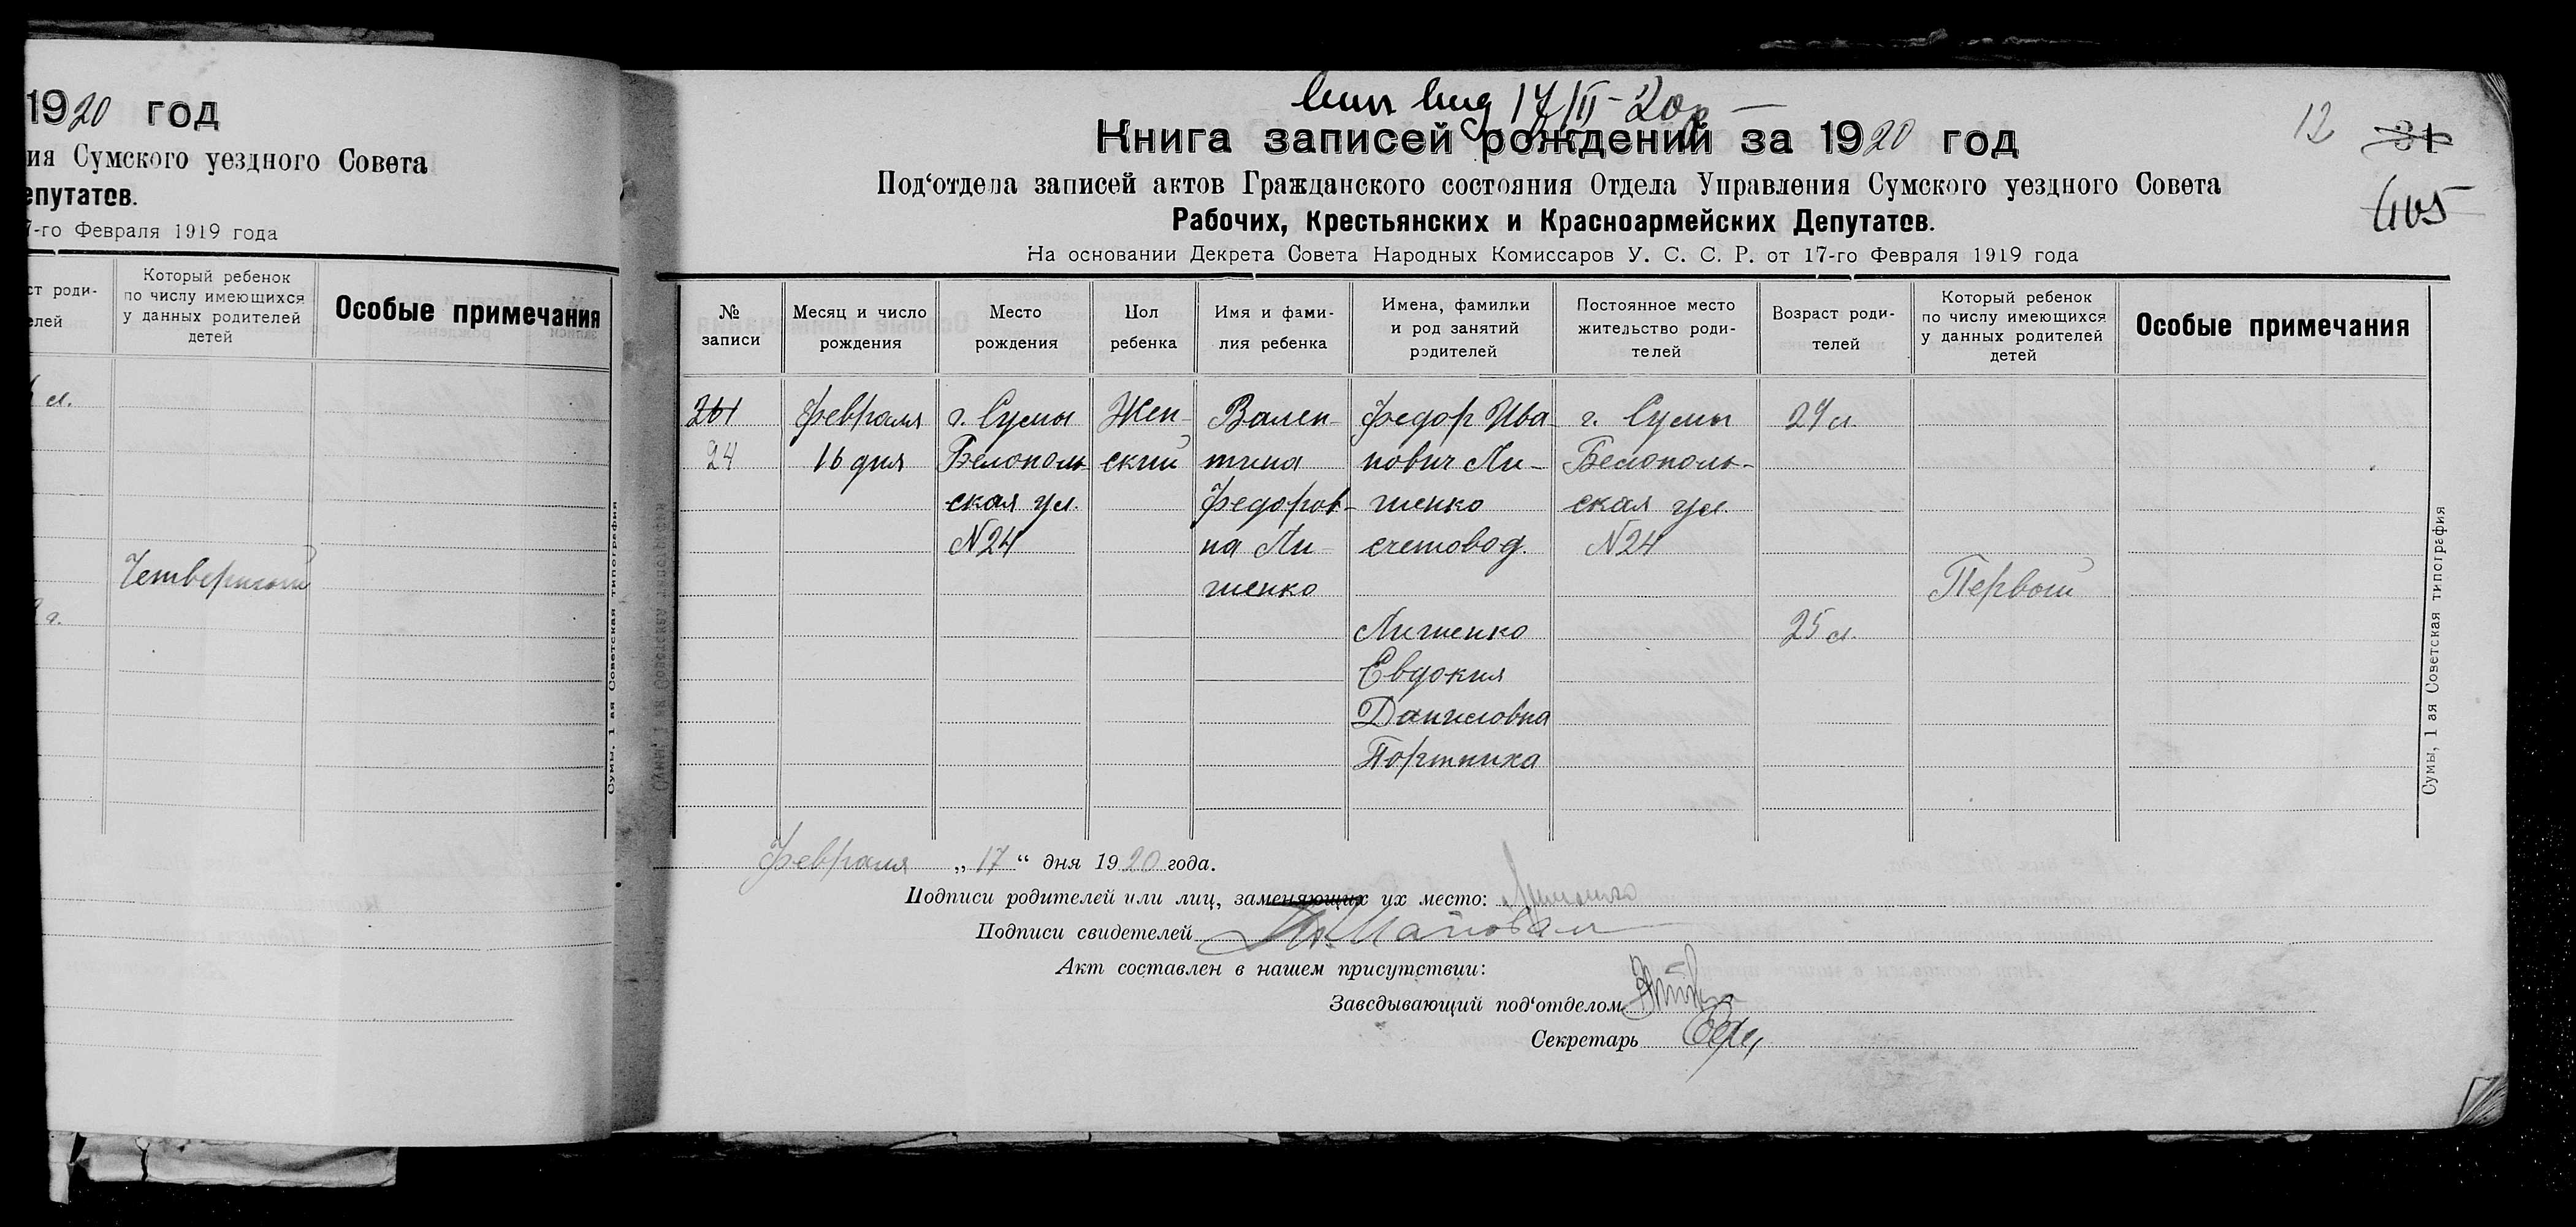 1920 год
ия Сумского уездного Совета
епутатов.
7-го Февраля 1919 года
ст роди-
елей
Который ребенок
по числу имеющихся
у данных родителей
детей
Особые примечания
л.
Четвертый
г.
Сумы, 1 ая Советская типография
17/II-20
12
31
Книга записей рождений за 1920 год
Под‘отдела записей актов Гражданского состояния Отдела Управления Сумского уездного Совета
Рабочих, Крестьянских и Красноармейских Депутатов.
На основании Декрета Совета Народных Комиссаров У. С. С. Р. от 17-го Февраля 1919 года
№
записи
Месяц и число
рождения
Место
рождения
Пол
ребенка
Имя и фами-
лия ребенка
Имена, фамилии
и род занятий
родителей
Постоянное место
жительство роди-
телей
Возраст роди-
телей
Который ребенок
по числу имеющихся
у данных родителей
детей
Особые примечания
261
24
Февраля
16 дня
г. Сумы
Белополь-
ская ул.
№ 24
Жен-
ский
Вален-
тина
Федоров-
на Ли-
шенко
Федор Ива-
нович Ли-
шенко
счетовод.
Лишенко
Евдокия
Даниловна
Портниха
г. Сумы
Белополь-
ская ул.
№ 24
29 л.
25 л.
Первый
Сумы, 1 ая Советская типография
Февраля „17“ дня 1920 года.
Подписи родителей или лиц, заменяющих их место: Лишенко
Подписи свидетелей
Акт составлен в нашем присутствии:
Заведывающий под‘отделом
Секретарь